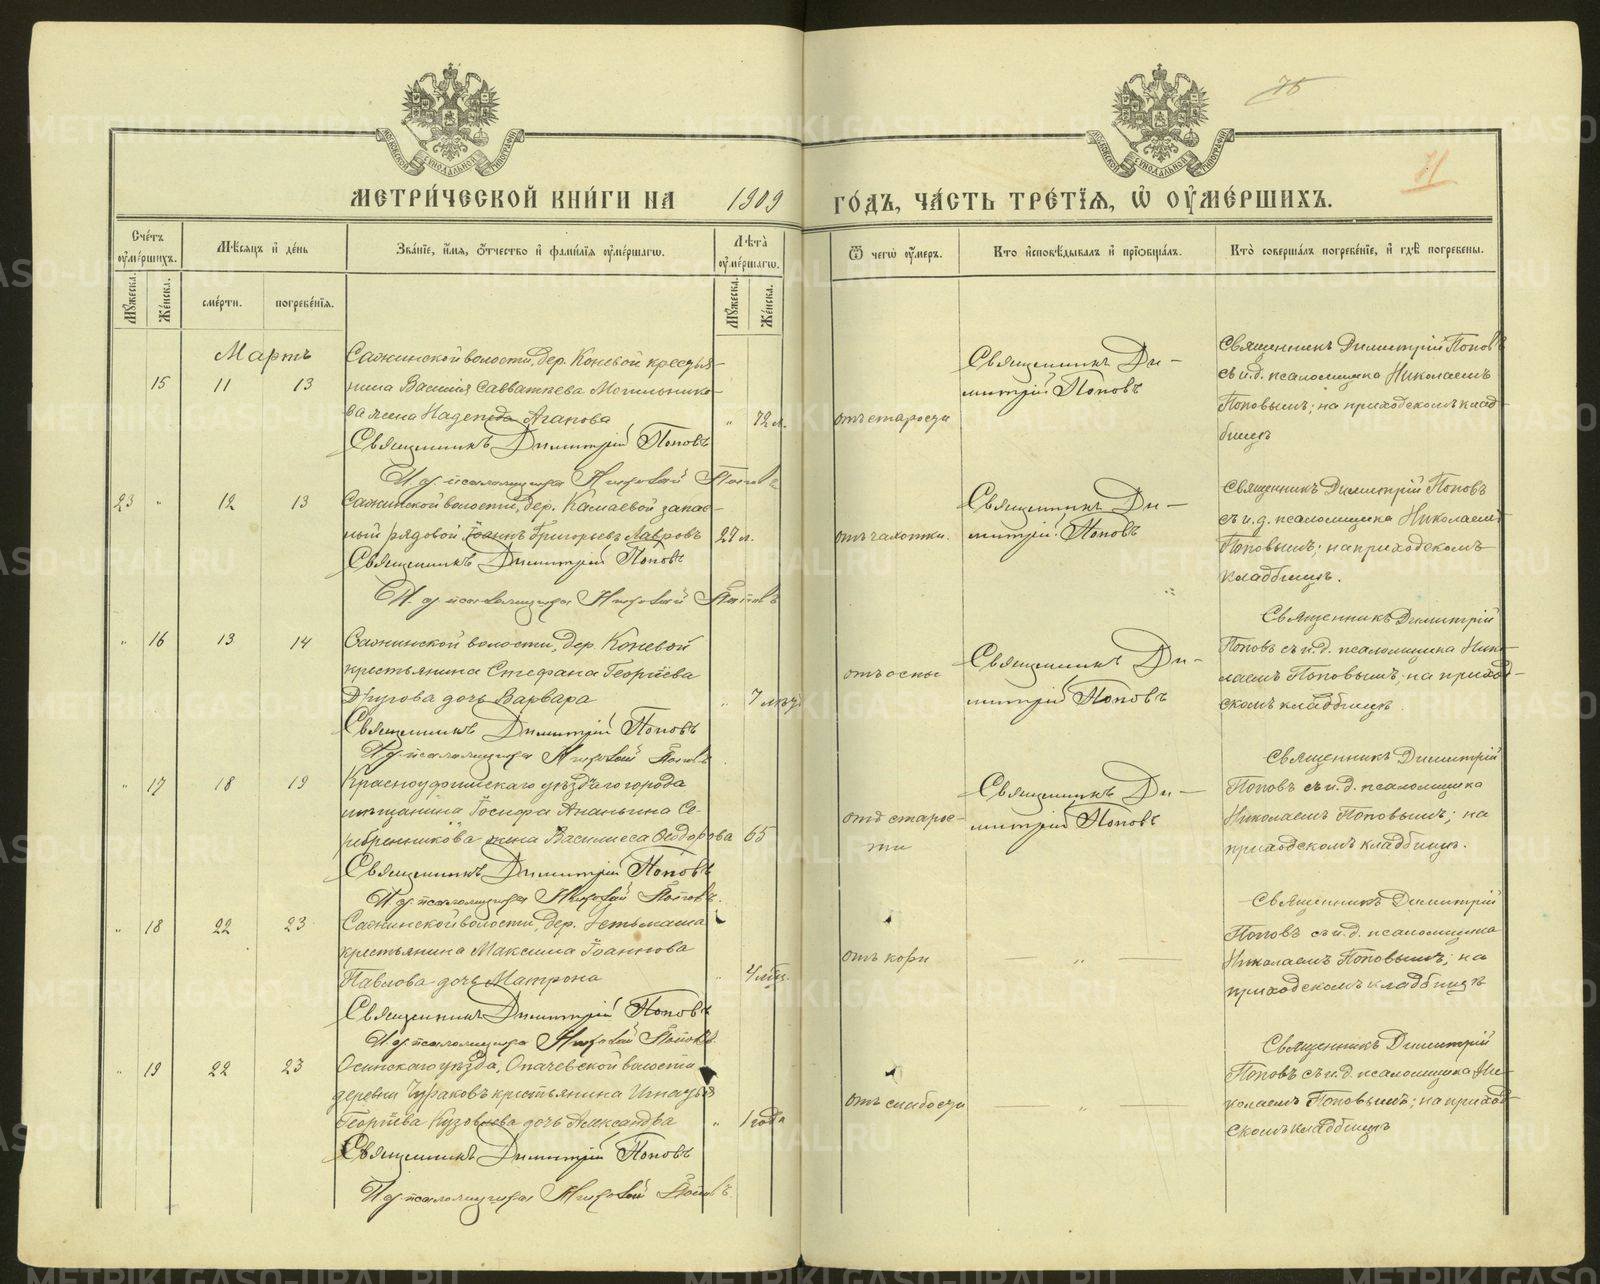 МЕТРИ́ЧЕСКОЙ КНИ́ГИ НА 1909 ГО́ДЪ, ЧА́СТЬ ТРЕ́ТІѦ, Ѡ ОУМЕ́РШИХЪ.
71
Сче́тъ оуме́ршихъ.
Мѣ́сѧцъ и де́нь
Зва́нїе, и́мѧ, о́тчество и фами́лїѧ оуме́ршагѡ.
Лѣта̀ оуме́ршагѡ.
Ѿ чегѡ̀ оу́меръ.
Кто̀ исповѣ́дывалъ и прїѡбща́лъ.
Кто̀ соверша́лъ погребе́нїе, и гдѣ̀ погребе́ны.
Мꙋ́жеска. Же́нска.
сме́рти. погребе́нїѧ.
Мꙋ́жеска. Же́нска.
Мартъ
15 11 13
Сажинской волости, дер. Коневой крестья-
нина Василія Савватѣева Могильнико-
ва жена Надежда Агапова
" 72 л.
Священникъ Димитрій Поповъ
И. д. псаломщика Николай Поповъ
отъ старости
Священникъ Ди-
митрій Поповъ
Священникъ Димитрій Поповъ
съ и. д. псаломщика Николаемъ
Поповымъ; на приходскомъ клад-
бищѣ
23 " 12 13
Сажинской волости, дер. Камаевой запас-
ный рядовой Іоаннъ Григорьевъ Лавровъ 27 л.
Священникъ Димитрій Поповъ
И. д. псаломщика Николай Поповъ
отъ чахотки.
Священникъ Ди-
митрій Поповъ
Священникъ Димитрій Поповъ
съ и. д. псаломщика Николаемъ
Поповымъ; на приходскомъ
кладбищѣ.
" 16 13 14
Сажинской волости, дер. Коневой
крестьянина Стефана Георгіева
Другова дочь Варвара
" 7 лѣтъ
Священникъ Димитрій Поповъ
И. д. псаломщика Николай Поповъ
отъ оспы
Священникъ Ди-
митрій Поповъ
Священникъ Димитрій
Поповъ съ и. д. псаломщика Нико-
лаемъ Поповымъ; на приход-
скомъ кладбищѣ.
" 17 18 19
Красноуфимскаго уѣзднаго города
мѣщанина Іосифа Ананьина Се-
ребренникова жена Василисса Ѳеодорова 65
Священникъ Димитрій Поповъ
И. д. псаломщика Николай Поповъ.
отъ старос-
ти
Священникъ Ди-
митрій Поповъ
Священникъ Димитрій
Поповъ съ и. д. псаломщика
Николаемъ Поповымъ; на
приходскомъ кладбищѣ.
" 18 22 23
Сажинской волости, дер. Устьмаша
крестьянина Максима Іоаннова
Павлова дочь Матрона
" 4 мѣс.
Священникъ Димитрій Поповъ
И. д. псаломщика Николай Поповъ.
отъ кори
— " —
Священникъ Димитрій
Поповъ съ и. д. псаломщика
Николаемъ Поповымъ; на
приходскомъ кладбищѣ
" 19 22 23
Осинскаго уѣзда, Опачевской волости
деревни Чураковъ крестьянина Игнатія
Георгіева Кузовлева дочь Александра
" 1 года
Священникъ Димитрій Поповъ
И. д. псаломщика Николай Поповъ.
отъ слабости
— " —
Священникъ Димитрій
Поповъ съ и. д. псаломщика Ни-
колаемъ Поповымъ; на приход-
скомъ кладбищѣ
METRIKI.GASO-URAL.RU